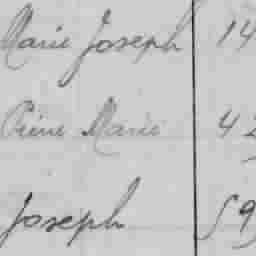 Marie Joseph 14
Marie 42
Joseph 59